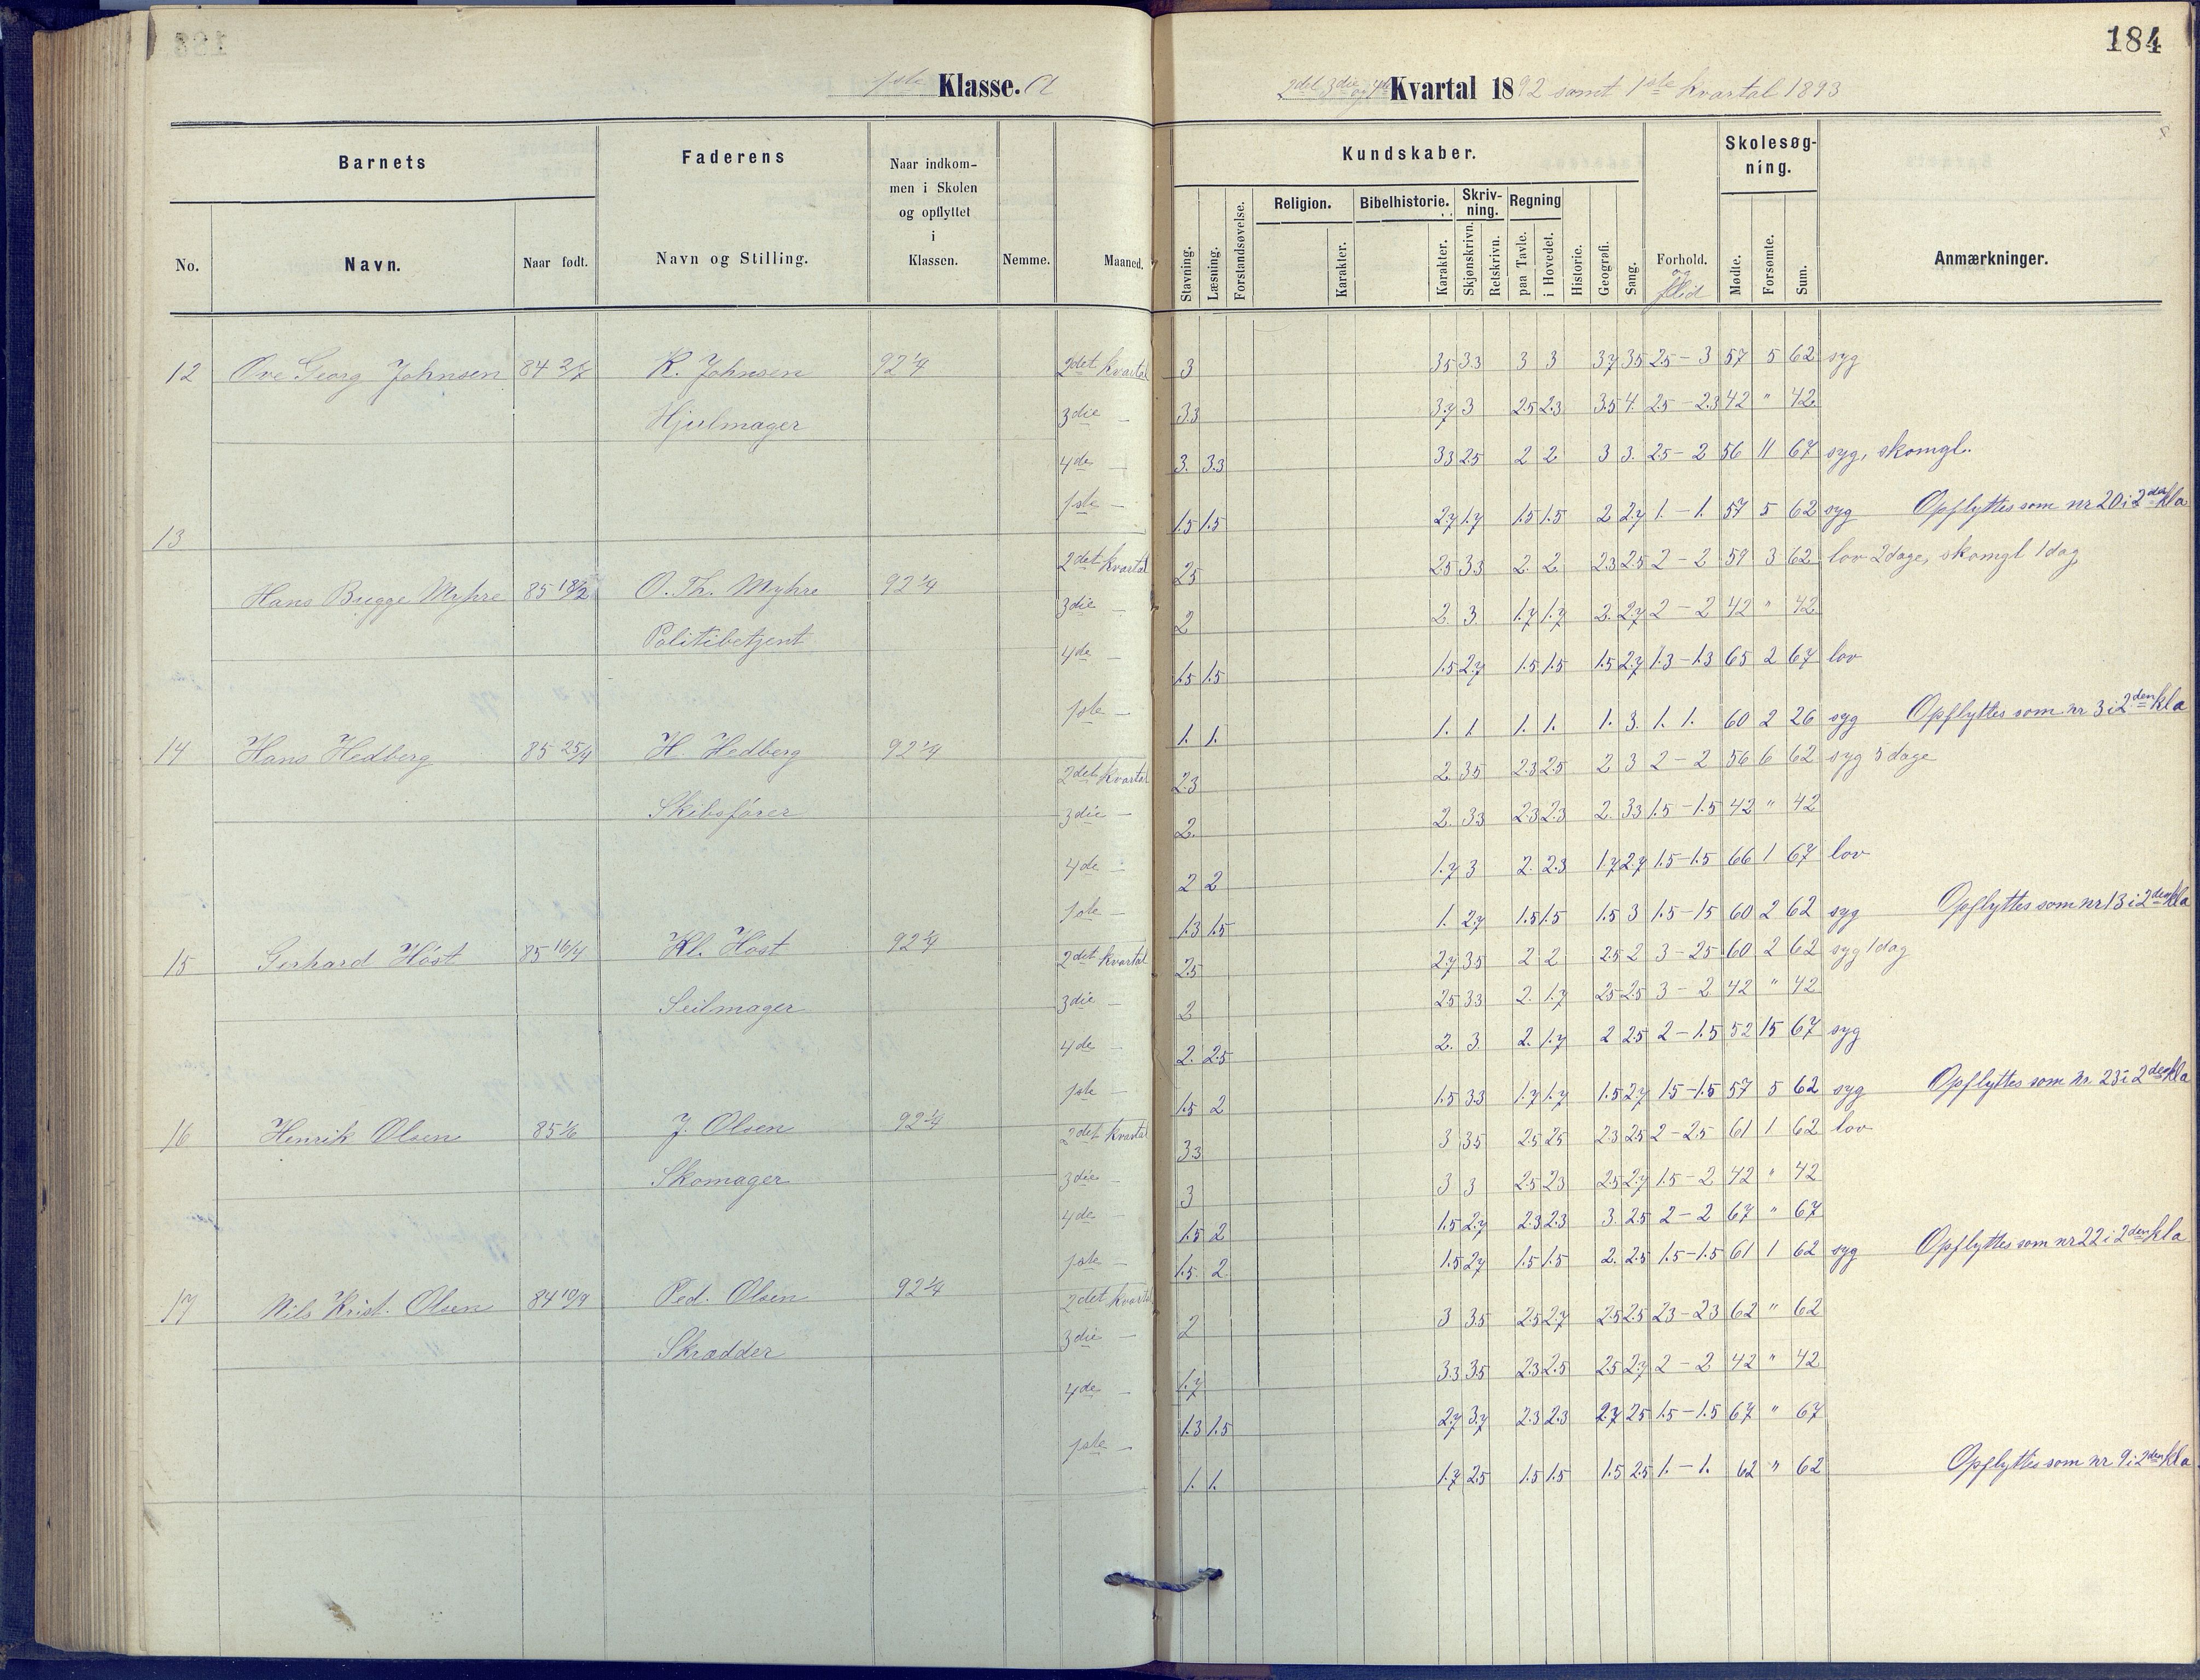 184
1ste Klasse. A
2det, 3die og 4de Kvartal 1892 samt 1ste kvartal 1893
Barnets
Faderens
Naar indkommen i Skolen og opflyttet i Klassen.
Nemme.
Maaned.
Kundskaber.
Skolesøgning.
No.
Navn.
Naar født.
Navn og Stilling.
Stavning.
Læsning.
Forstandsøvelse.
Religion.
Karakter.
Bibelhistorie.
Karakter.
Skrivning.
Skjønskrivn.
Retskrivn.
Regning
paa Tavle.
i Hovedet.
Historie.
Geografi.
Sang.
Forhold.
og flid
Mødte.
Forsømte.
Sum.
Anmærkninger.
12 Ove Georg Johnsen 84 2/7 K. Johnsen 92 1/4 2det kvartal 3 3.5 3.3 3 3 3.7 3.5 2.5 - 3 57 5 62 syg
Hjulmager 3die — 3.3 3.7 3 2.5 2.3 3.5 4. 2.5 - 2.3 42 " 42
4de — 3. 3.3 3.3 2.5 2 2 3 3. 2.5 - 2 56 11 67 syg, skomgl.
1ste — 1.5 1.5 2.7 1.7 1.5 1.5 2 2.7 1. - 1. 57 5 62 syg Opflyttes som nr 20 i 2den kla
13 Hans Bugge Myhre 85 18/2 O. Th. Myhre 92 1/4 2det kvartal 2.5 2.5 3.3 2. 2. 2.3 2.5 2 - 2 59 3 62 lov 2 dage, skomgl 1 dag
Politibetjent 3die — 2 2. 3. 1.7 1.7 2. 2.7 2 - 2 42 " 42
4de — 1.5 1.5 1.5 2.7 1.5 1.5 1.5 2.7 1.3 - 1.3 65 2 67 lov
1ste — 1. 1. 1. 1. 1. 1. 1. 3. 1. 1. 60 2 26 syg Opflyttes som nr 3 i 2den kla
14 Hans Hedberg 85 25/4 H. Hedberg 92 1/4 2det kvartal 2.3 2. 3.5 2.3 2.5 2 3 2 - 2 56 6 62 syg 5 dage
Skibsfører 3die — 2. 2. 3.3 2.3 2.3 2. 3.3 1.5 - 1.5 42 " 42
4de — 2 2 1.7 3 2. 2.3 1.7 2.7 1.5 - 1.5 66 1 67 lov
1ste — 1.3 1.5 1. 2.7 1.5 1.5 1.5 3 1.5 - 1.5 60 2 62 syg Opflyttes som nr 13 i 2den kla
15 Gerhard Høst 85 16/4 Kl. Høst 92 1/4 2det kvartal 2.5 2.7 3.5 2 2 2.5 2 3 - 2.5 60 2 62 syg 1 dag
Seilmager 3die — 2 2.5 3.3 2. 1.7 2.5 2.5 3 - 2 42 " 42
4de — 2. 2.5 2. 3. 2. 1.7 2 2.5 2 - 1.5 52 15 67 syg
1ste — 1.5 2 1.5 3.3 1.7 1.7 1.5 2.7 1.5 - 1.5 57 5 62 syg Opflyttes som nr. 23 i 2den kla
16 Henrik Olsen 85 1/6 J. Olsen 92 1/4 2det kvartal 3.3 3 3.5 2.5 2.5 2.3 2.5 2 - 2.5 61 1 62 lov
Skomager 3die — 3 3 3 2.5 2.3 2.5 2.7 1.5 - 2 42 " 42
4de — 1.5 2 1.5 2.7 2.3 2.3 3. 2.5 2 - 2 67 " 67
1ste — 1.5. 2. 1.5 2.7 1.5 1.5 2. 2.5 1.5 - 1.5 61 1 62 syg Opflyttes som nr 22 i 2den kla
17 Nils Krist. Olsen 84 10/9 Ped. Olsen 92 1/4 2det kvartal 2 3 3.5 2.5 2.7 2.5 2.5 2.3 - 2.3 62 " 62
Skrædder 3die — 1.7 3.3 3.5 2.3 2.5 2.5 2.7 2 - 2 42 " 42
4de — 1.3 1.5 2.7 3.7 2.3 2.3 2.7 2.5 1.5 - 1.5 67 " 67
1ste — 1. 1. 1.7 2.5 1.5 1.5 1.5 2.5 1. - 1. 62 " 62 Opflyttes som nr 9 i 2den kla